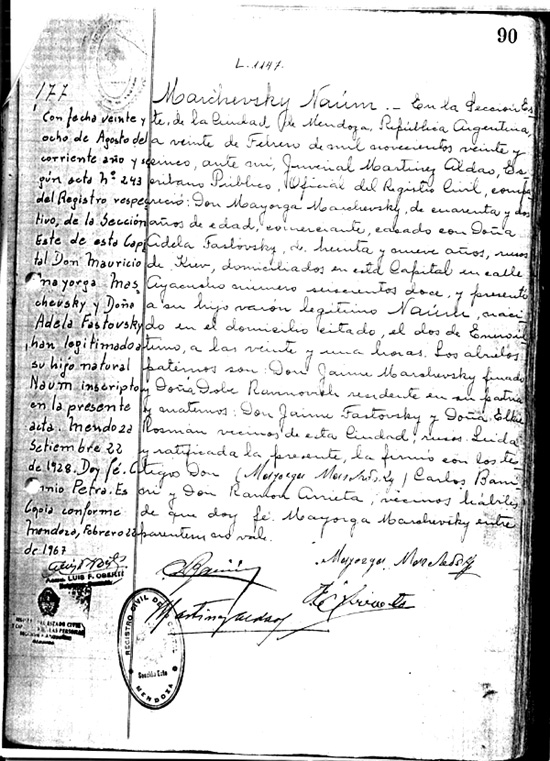 90
L. 1147.
177
Con fecha veinte y
ocho de Agosto del
corriente año y se
gún acta Nº 243
del Registro respec
tivo, de la Sección
Este de esta Capi
tal Don Mauricio
mayorga Mas
chevsky y Doña
Adela Fastovsky
han legitimado a
su hijo natural
Naum inscripto
en la presente
acta. Mendoza
Setiembre 22
de 1928. Doy fé. A
nio Petra. Es
Copia conforme
Mendoza, Febrero 22
de 1967
LUIS P. OBERTI
Marchevsky Naúm. - En la Sección Es
te, de la Ciudad de Mendoza, República Argentina,
a veinte de Febrero de mil novecientos veinte y
cinco, ante mi, Juvenal Martinez Aldao, Es
cribano Público, Oficial del Registro Civil, compa
reció: Don Mayorga Marchevsky, de cuarenta y dos
años de edad, comerciante, casado con Doña
Adela Fastovsky, de treinta y nueve años, rusos
de Kiev, domiciliados en esta Capital en calle
Ayacucho número seiscientos doce, y presentó
a su hijo varón legítimo Naúm, naci
do en el domicilio citado, el dos de Enero úl
timo, a las veinte y una horas. Los abuelos
paternos son: Don Jaime Marchevsky finado
y Doña Dobe residente en su patria
y maternos: Don Jaime Fastovsky y Doña
Rosman vecinos de esta Ciudad, rusos. Leida
y ratificada la presente, la firmó con los tes
tigos Don Carlos
y Don Ramon Arrieta, vecinos hábiles
de que doy fé. Mayorga Marchevsky entre
parentesis no vale.
REGISTRO CIVIL DE LA CAPITAL
Sección Este
MENDOZA